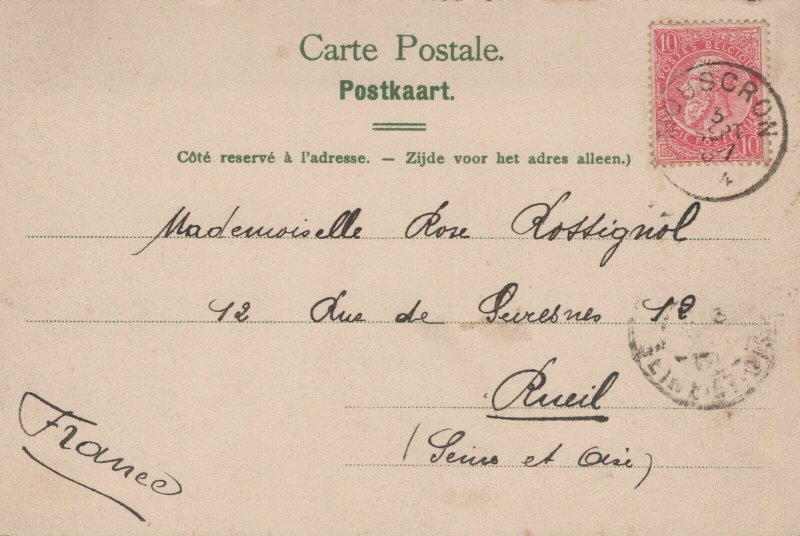 Carte Postale.
Postkaart.
Côté reservé à l'adresse. — Zijde voor het adres alleen.)
10 10
POSTES BELGIQUE
BELGIË POSTERIJEN
10 10
MOUSCRON
5
SEPT
4
Mademoiselle Rose Rossignol
12 Rue de Suresnes 12
Rueil
(Seine et Oise)
France